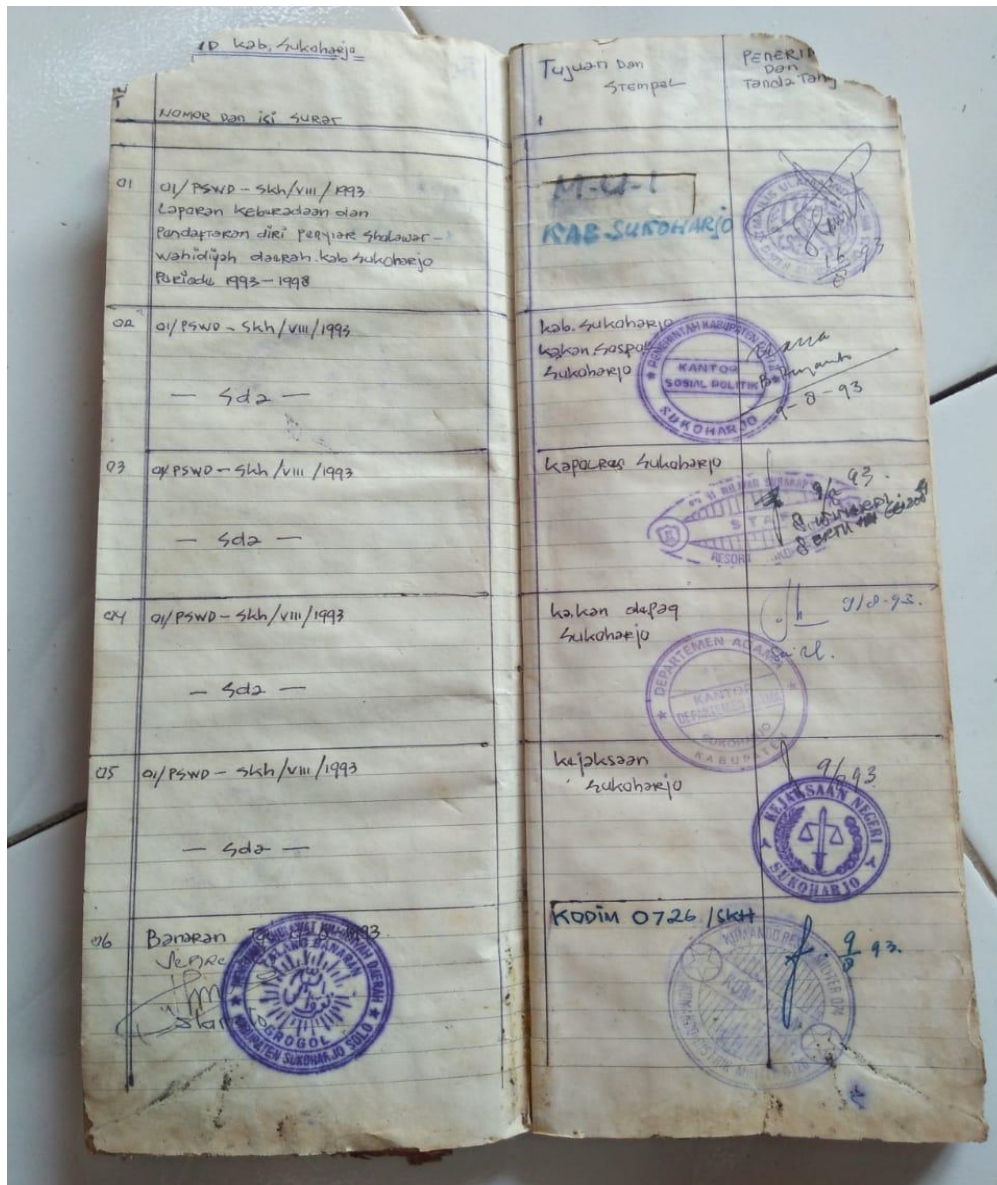 ID kab, Sukoharjo
NOMOR Dan isi SURAT
Tujuan Dan
STEMPEL
PENERI
Dan
Tanda Tang
01
01/PSWD-Skh/VIII/1993
Laporan Keburadaan dan
Pendaftaran diri Penyiar Sholawat-
Wahidiyah daerah kab Sukoharjo
Periode 1993-1998
M-U-I
KAB-SUKOHARJO
16
8 93
02
01/PSWD-Skh/VIII/1993
- Sda -
kab. Sukoharjo
kakan, Sospol
Sukoharjo
PEMERINTAH KABUPATEN
KANTOR
SOSIAL POLITIK
SUKOHARJO
9-8-93
03
01/PSWD-Skh/VIII/1993
- Sda -
Kapolres Sukoharjo
STAF
RESORT
9/8 93.
04
01/PSWD-Skh/VIII/1993
- Sda -
ka.kan depag
Sukoharjo
DEPARTEMEN AGAMA
KANTOR
DEPARTEMEN AGAMA
SUKOHARJO
KABUPATEN
9/8-93.
05
01/PSWD-Skh/VIII/1993
- Sda -
kejaksaan
Sukoharjo
9/8 93.
KEJAKSAAN NEGERI
SUKOHARJO
06
Banaran
1993
SHOLAWAT WAHIDIYAH DAERAH
BANARAN
GROGOL
KABUPATEN SUKOHARJO SOLO
KODIM 0726/SKH
9
8 93.